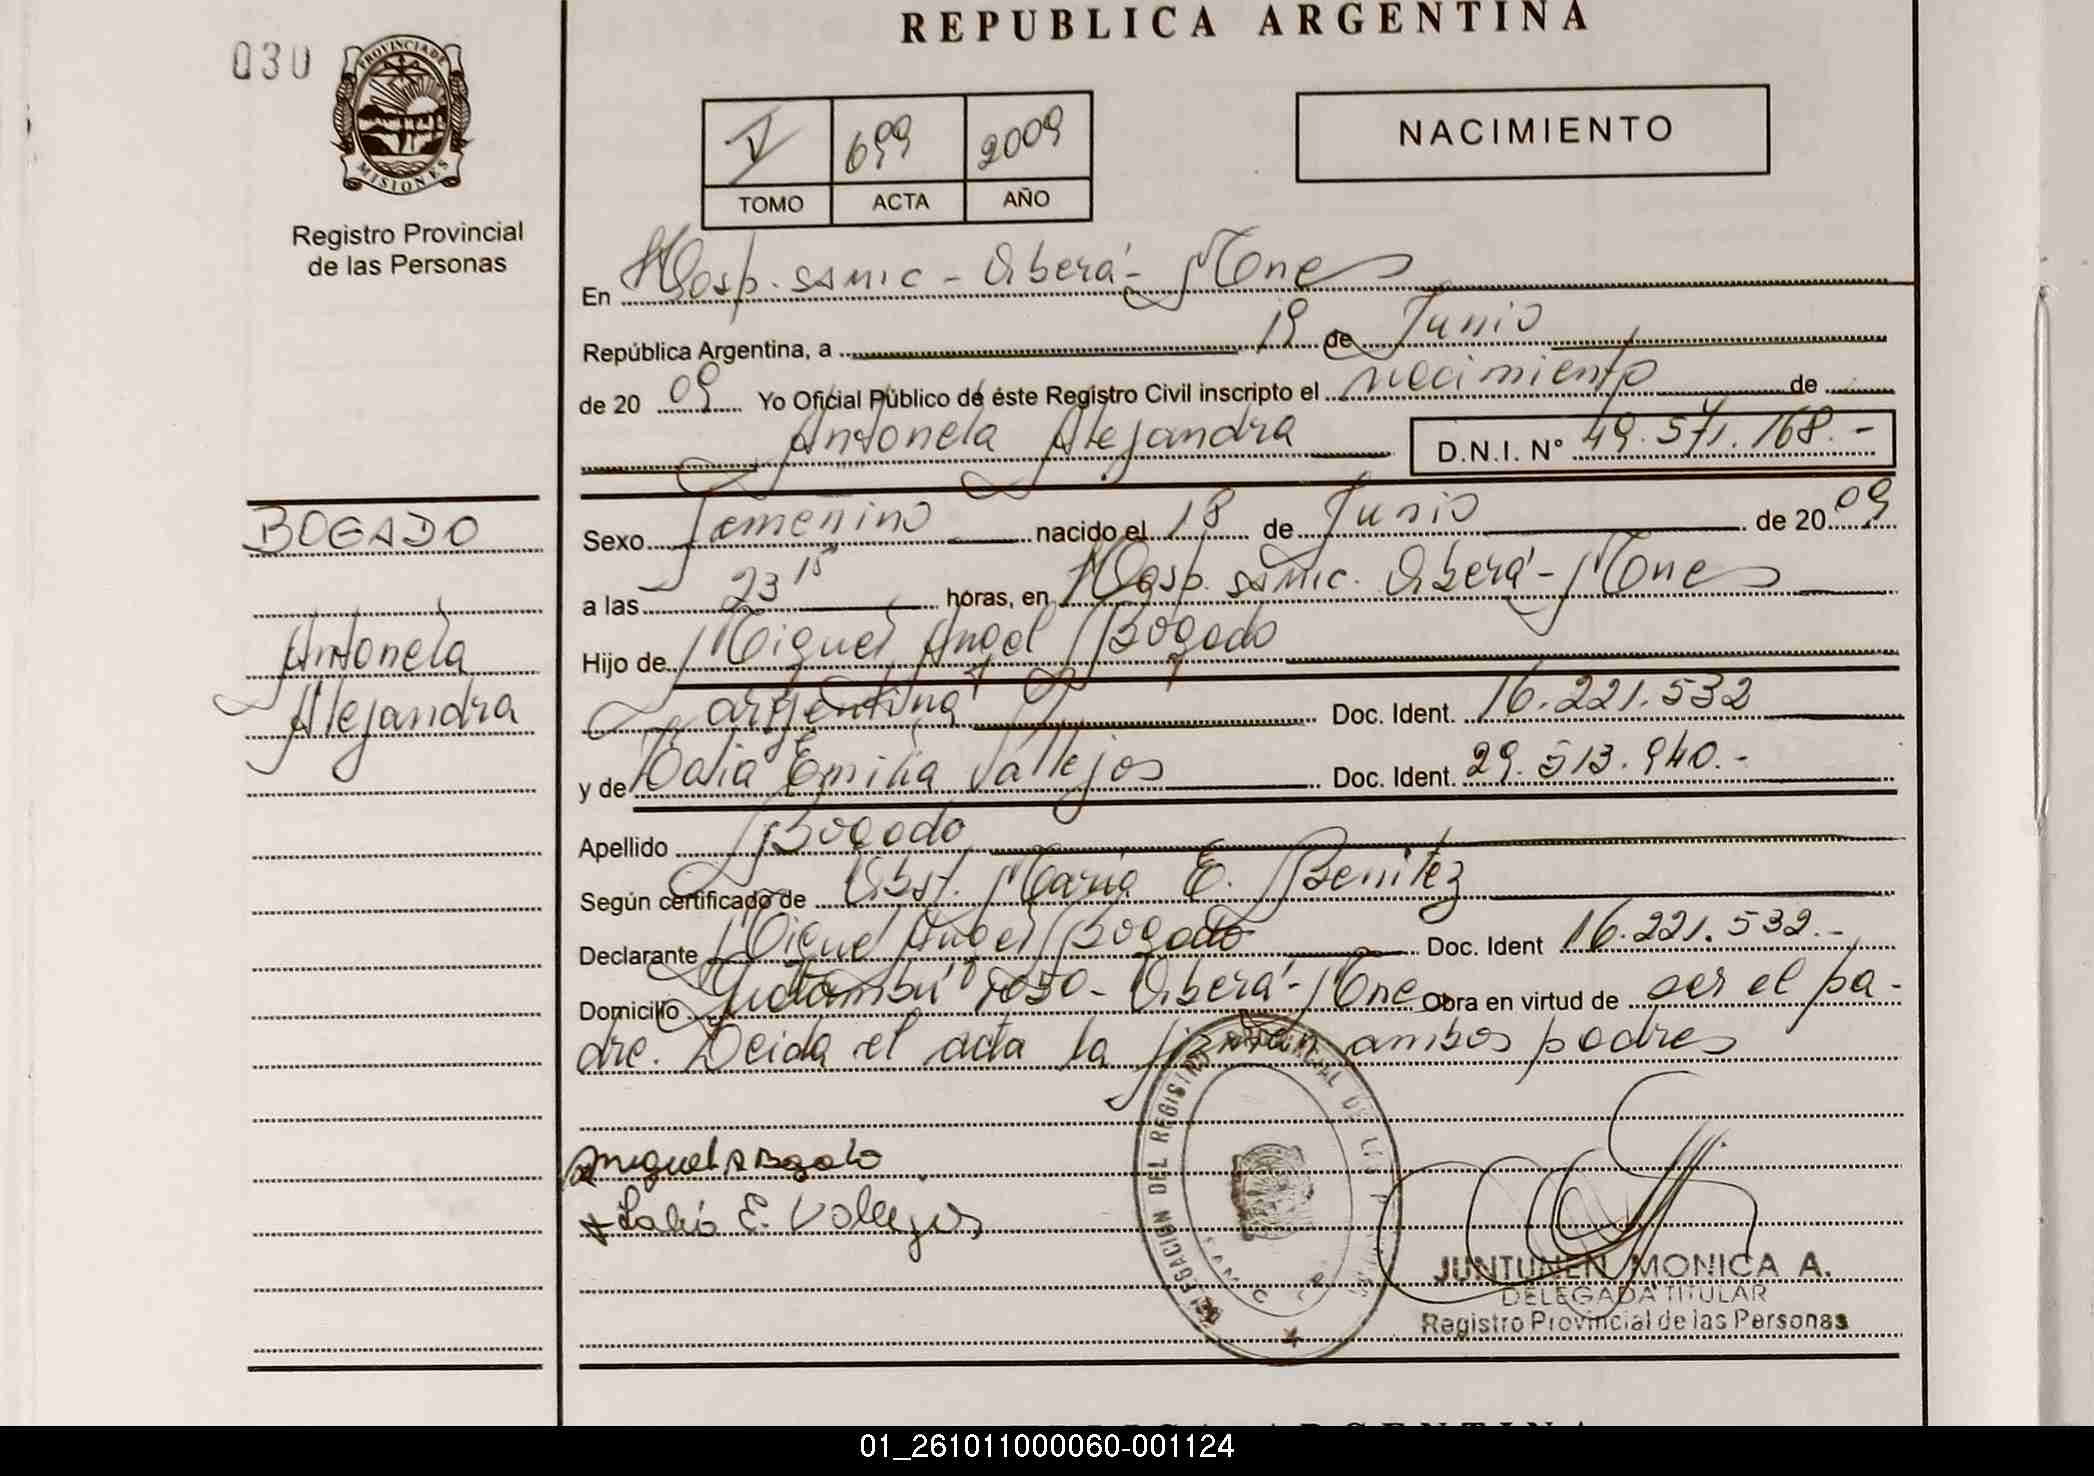 REPUBLICA ARGENTINA
030
PROVINCIA DE
MISIONES
Registro Provincial
de las Personas
V 699 2009
TOMO ACTA AÑO
NACIMIENTO
En Hosp. SAMIC - Oberá - Mones
República Argentina, a 19 de Junio
de 20 09 Yo Oficial Público de éste Registro Civil inscripto el nacimiento de
Antonela Alejandra D.N.I. Nº 49.571.168.-
BOGADO
Antonela
Alejandra
Sexo femenino nacido el 18 de Junio de 20 09
a las 23 15 horas, en Hosp. SAMIC. Oberá - Mones
Hijo de Miguel Angel Bogado
argentina Doc. Ident. 16.221.532
y de Emilia Vallejos Doc. Ident. 29.513.940.-
Apellido Bogado
Según certificado de Obst. Maria E. Benitez
Declarante Miguel Angel Bogado Doc. Ident 16.221.532.-
Domicilio Oberá - Mones Obra en virtud de ser el pa-
dre. Leida el acta la firman ambos padres
Miguel A Bogado
E. Vallejos
DELEGACION DEL REGISTRO PROVINCIAL DE LAS PERSONAS
JUNTUNEN MONICA A.
DELEGADA TITULAR
Registro Provincial de las Personas
01_261011000060-001124